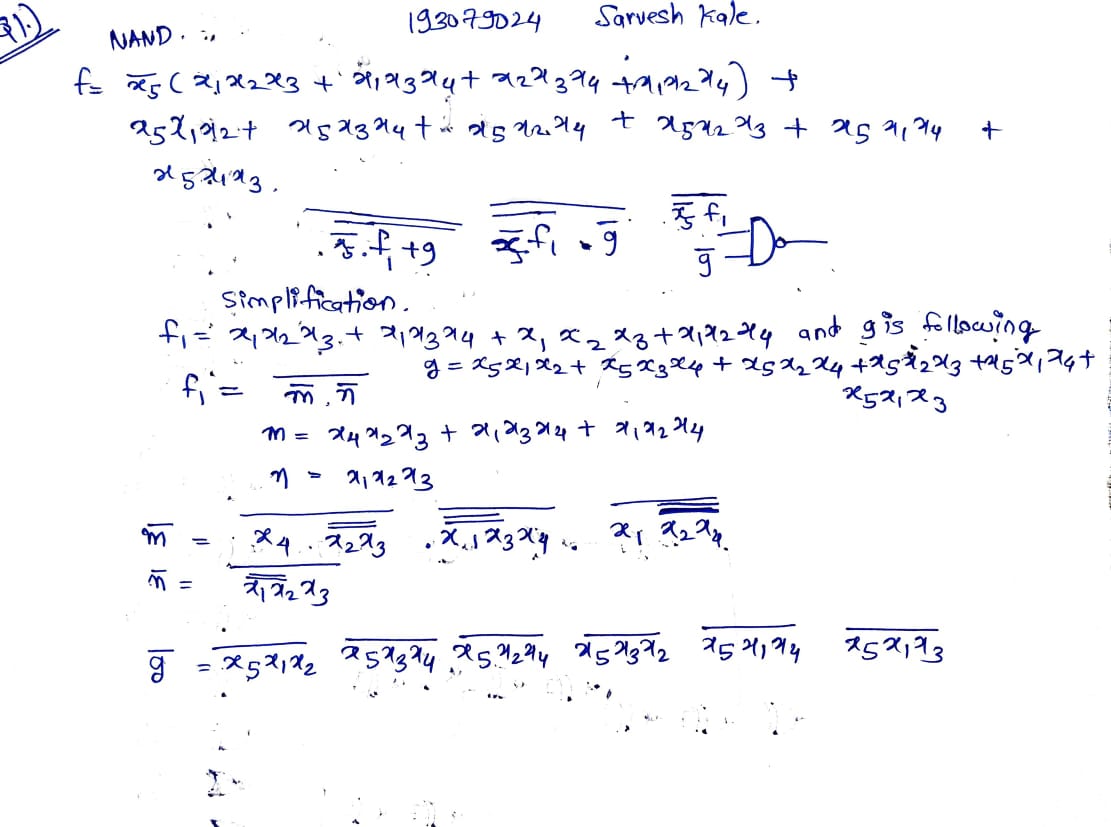 Q1.) 193079024 Sarvesh Kale.
NAND.
f= x̅₅ (x₁x₂x₃ + x₁x₃x₄ + x₂x₃x₄ + x₁x₂x₄) +
x₅x₁x₂ + x₅x₃x₄ + x₅x₂x₄ + x₅x₂x₃ + x₅x₁x₄ +
x₅x₁x₃.
\overline{\overline{\overline{x₅}.f₁ + g}} \overline{\overline{\overline{x₅}f₁} . \overline{g}} \overline{\overline{x₅} f₁}
\overline{g}
Simplification.
f₁ = x₁x₂x₃ + x₁x₃x₄ + x₁ x₂ x₃ + x₁x₂x₄ and g is following
g = x₅x₁x₂ + x₅x₃x₄ + x₅x₂x₄ + x₅x₂x₃ + x₅x₁x₄ +
x₅x₁x₃
f₁ = \overline{\overline{m} . \overline{n}}
m = x₄x₂x₃ + x₁x₃x₄ + x₁x₂x₄
n = x₁x₂x₃
\overline{m} = \overline{x₄ . \overline{\overline{x₂x₃}}} . \overline{\overline{\overline{x₁x₃}}x₄} . \overline{x₁ \overline{\overline{x₂x₄}}}
\overline{n} = \overline{\overline{\overline{x₁x₂}}x₃}
\overline{g} = \overline{x₅x₁x₂} \overline{x₅x₃x₄} . \overline{x₅x₂x₄} \overline{x₅x₃x₂} \overline{x₅x₁x₄} \overline{x₅x₁x₃}